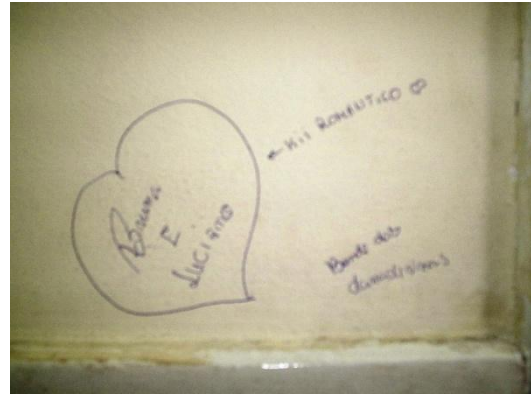 Bruna
E
LUCIANO
← Kii ROMÂNTICO ♡
Bonde das